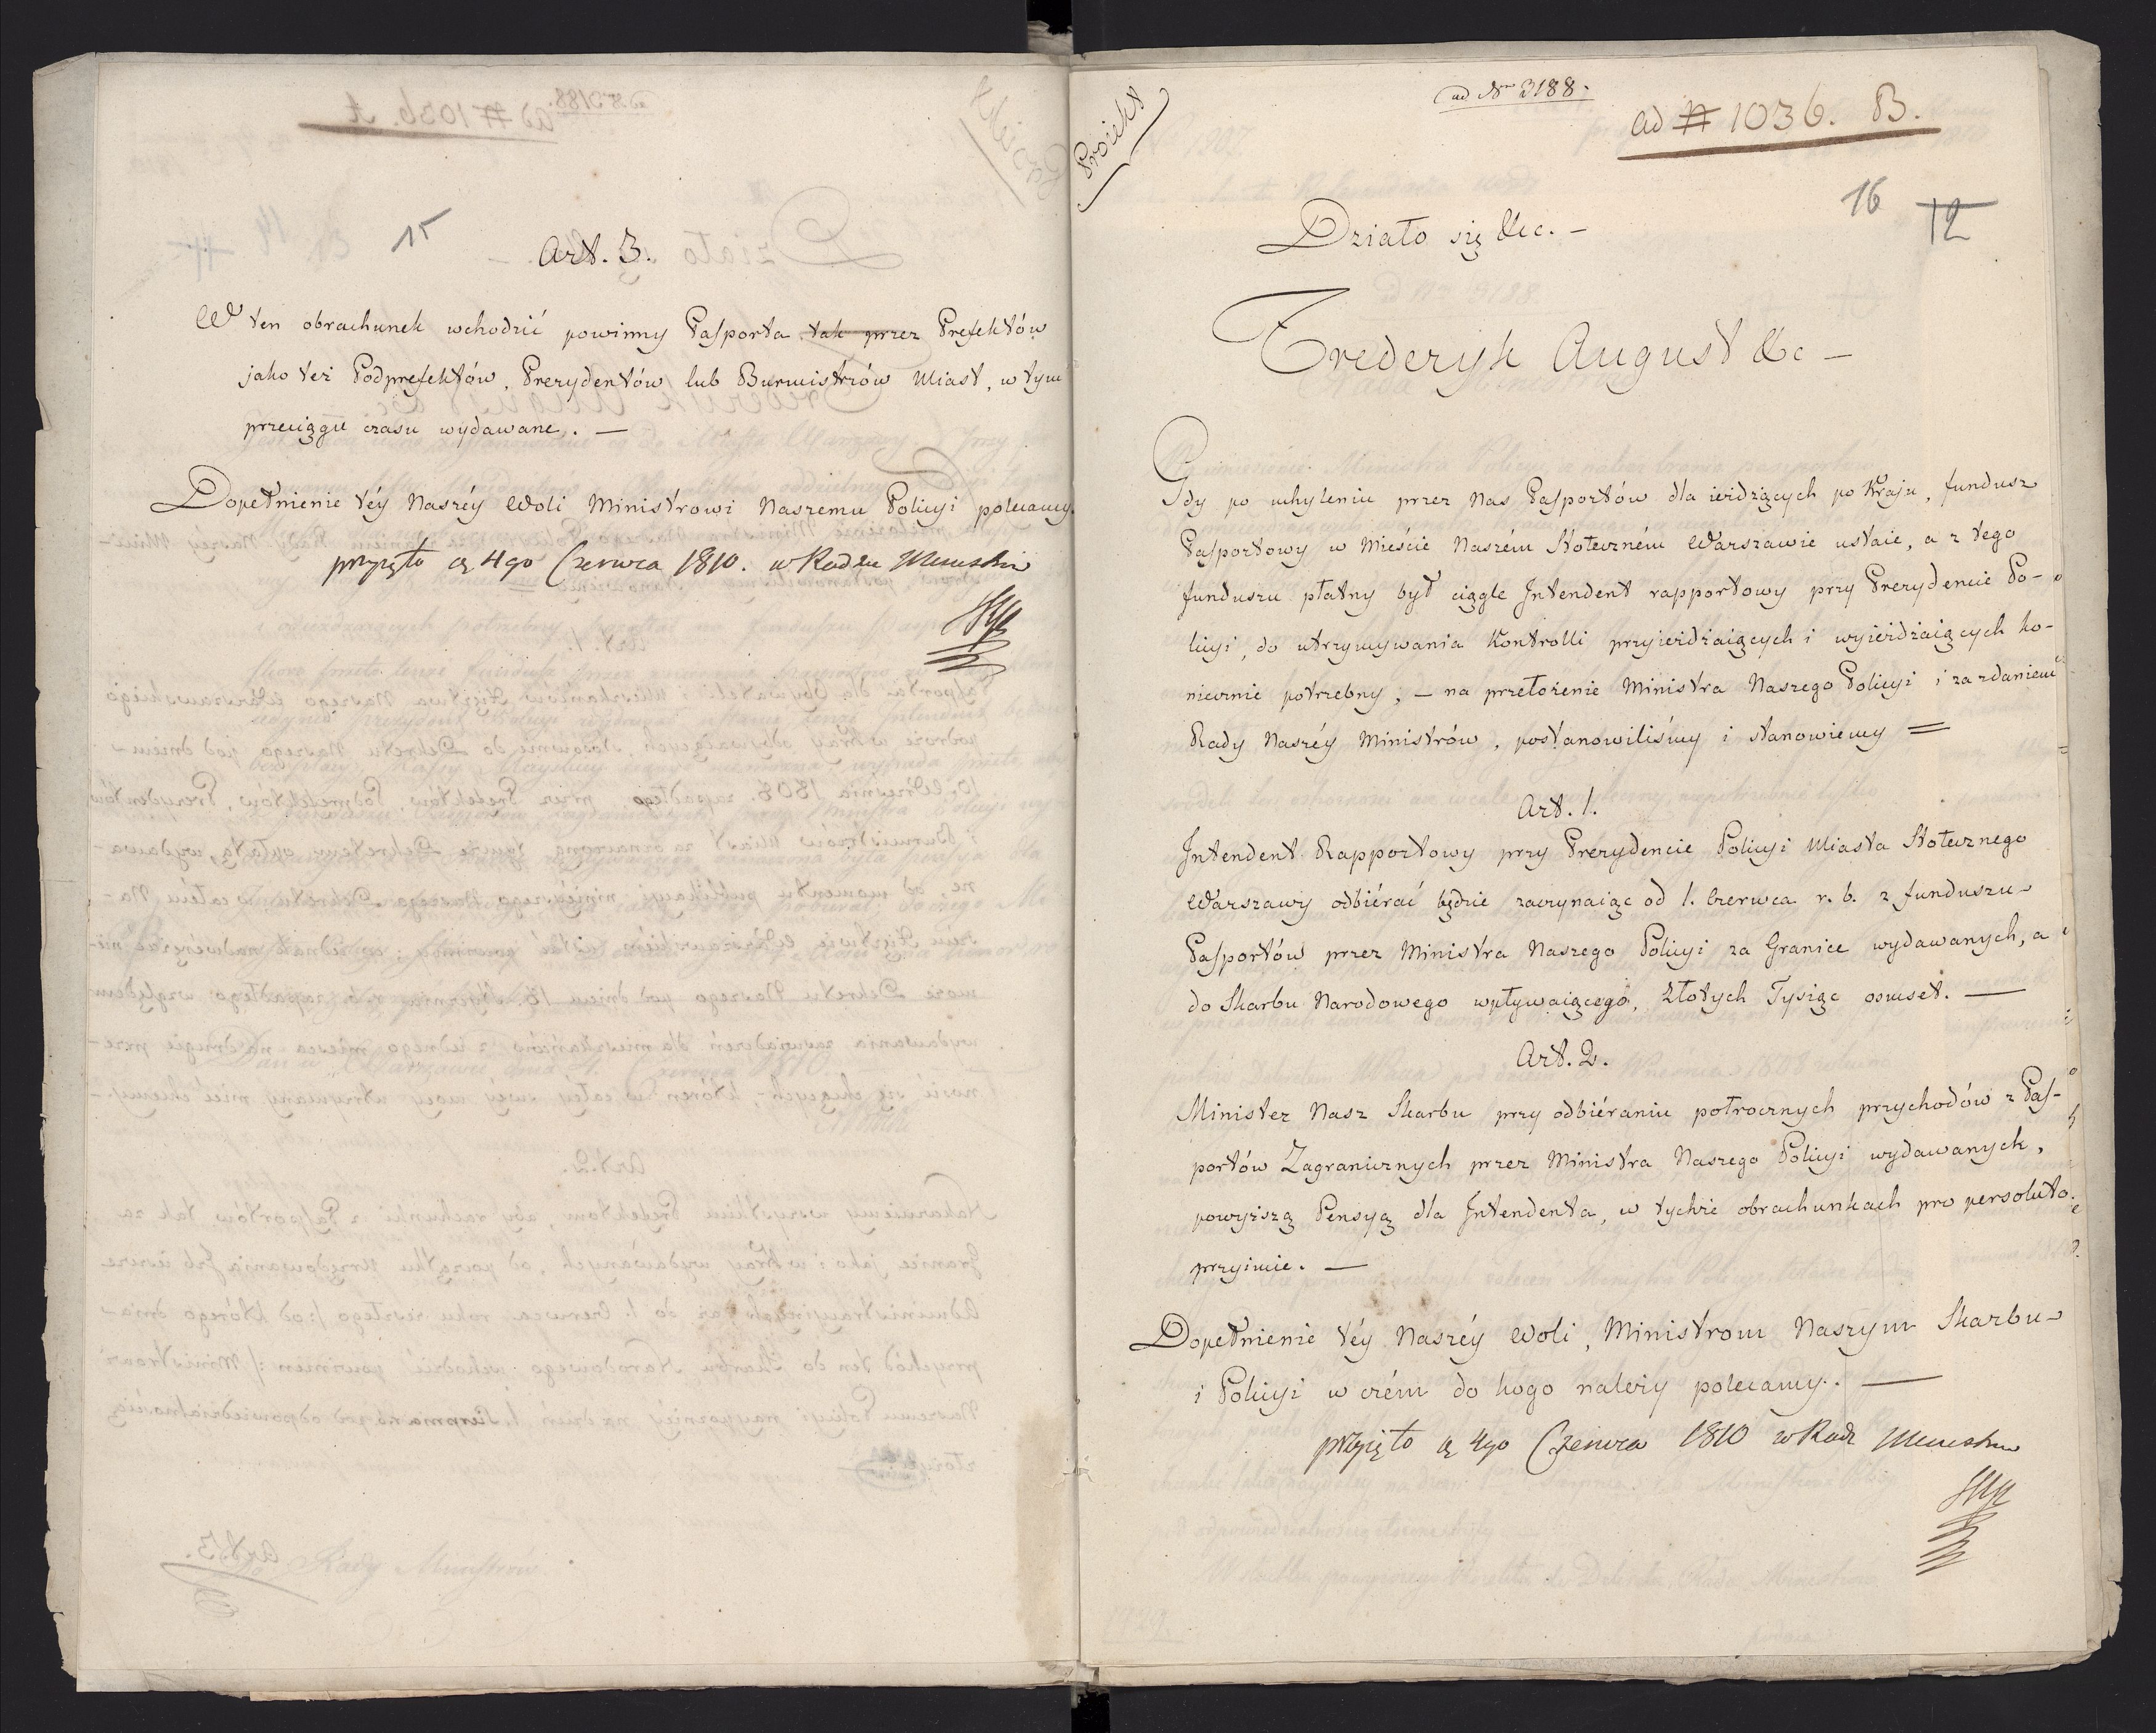 15
Art. 3.
W ten obrachunek wchodzić powinny Pasporta tak przez Prefektów
jako też Podprefektów, Prezydentów lub Burmistrzów Miast, w tym
przeciągu czasu wydawane. —
Dopełnienie téy Naszéy Woli Ministrowi Naszemu Policyi polecamy.
przyięto d. 4go Czerwca 1810. w Radzie Ministrów
Proiekt
ad Nrm 3188.
ad # 1036. B.
16
12
Działo się &c. —
Frederyk August &c —
Gdy po uchyleniu przez Nas Pasportów dla ieżdżących po Kraju, fundusz
Pasportowy w Mieście Naszém Stołeczném Warszawie ustaie, a z tego
funduszu płatny był ciągle Intendent rapportowy przy Prezydencie Po-
licyi, do utrzymywania Kontrolli przyieżdżaiących i wyieżdżaiących ko-
niecznie potrzebny; — na przełożenie Ministra Naszego Policyi i za zdaniem
Rady Naszéy Ministrów, postanowiliśmy i stanowiemy =
Art. 1.
Intendent Rapportowy przy Prezydencie Policyi Miasta Stołecznego
Warszawy odbiérać będzie zaczynaiąc od 1. Czerwca r. b. z funduszu
Pasportów przez Ministra Naszego Policyi za Granice wydawanych, a
do Skarbu Narodowego wpływaiącego, Złotych Tysiąc osmset. —
Art. 2.
Minister Nasz Skarbu przy odbiéraniu połrocznych przychodów z Pas-
portów Zagranicznych przez Ministra Naszego Policyi wydawanych,
powyższą Pensyą dla Intendenta, w tychże obrachunkach pro persoluto
przyimie. —
Dopełnienie téy Naszéy Woli, Ministrom Naszym Skarbu
i Policyi w czém do kogo należy polecamy. —
przyięto d. 4go Czerwca 1810 w Radz Ministrów